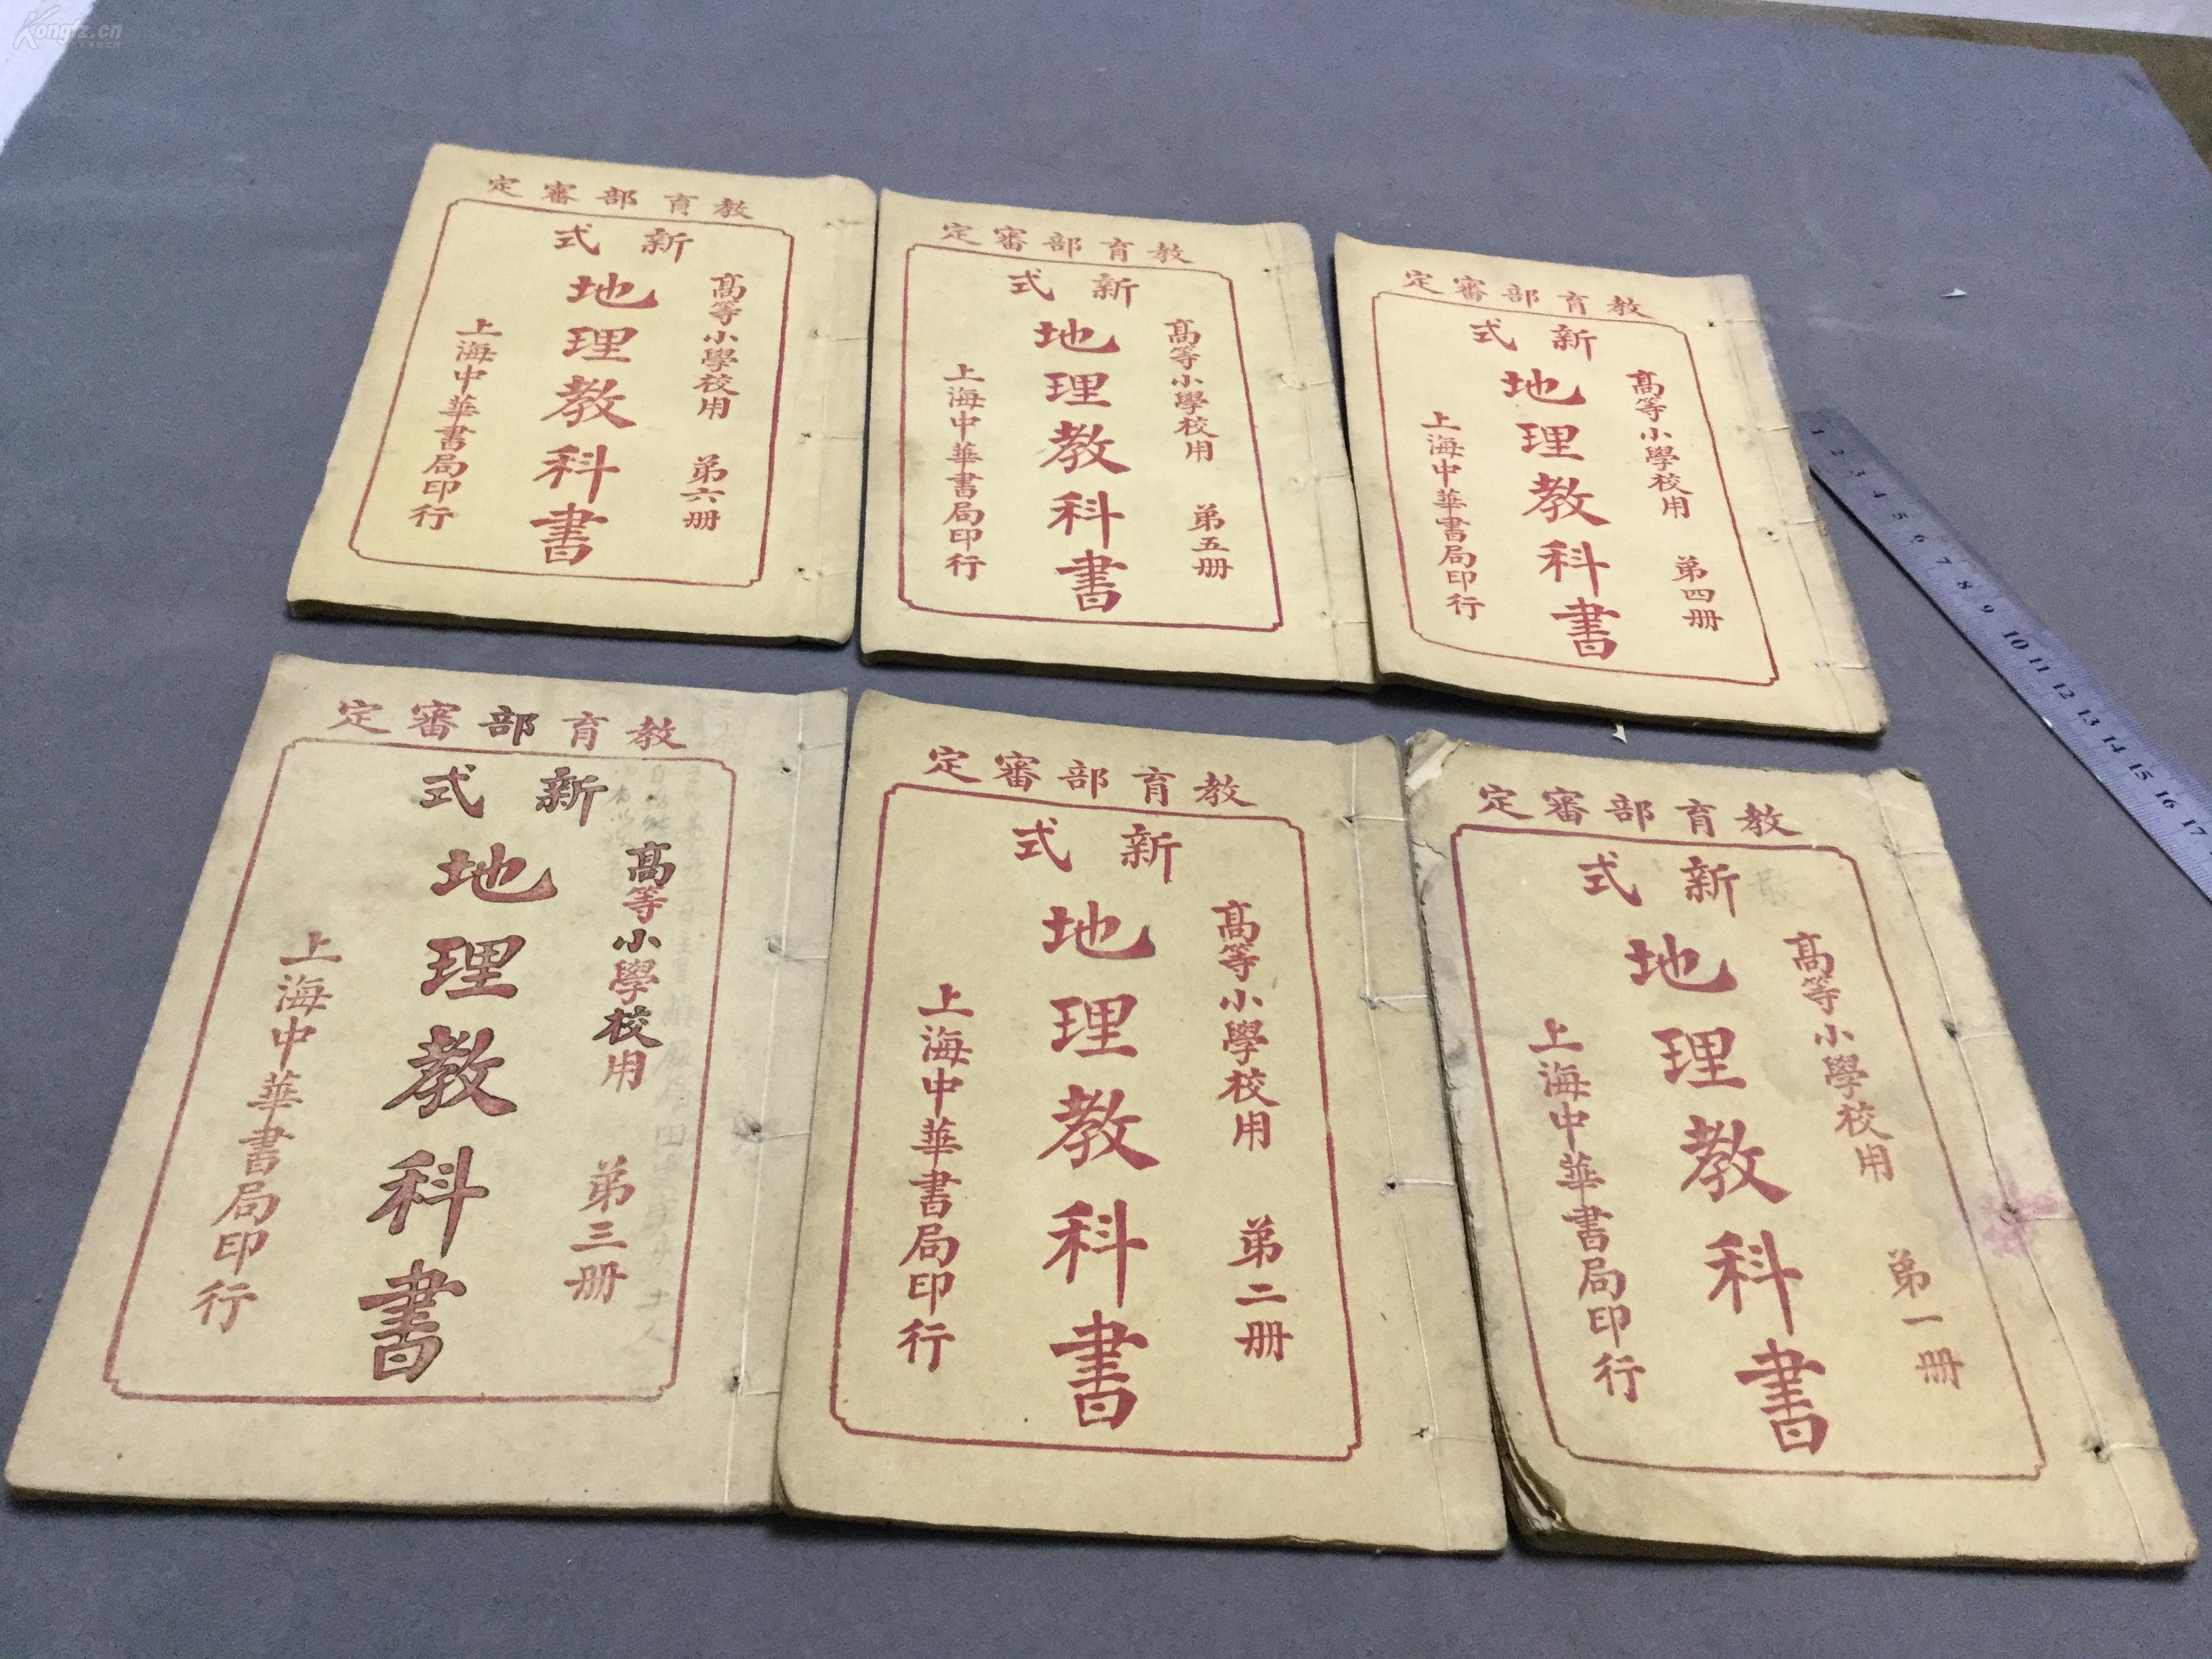 Kongfz.cn
教育部審定
新式
高等小學校用 第六册
地理教科書
上海中華書局印行
教育部審定
新式
高等小學校用 第五册
地理教科書
上海中華書局印行
教育部審定
新式
高等小學校用 第四册
地理教科書
上海中華書局印行
教育部審定
新式
高等小學校用 第三册
地理教科書
上海中華書局印行
教育部審定
新式
高等小學校用 第二册
地理教科書
上海中華書局印行
教育部審定
新式
高等小學校用 第一册
地理教科書
上海中華書局印行
1 2 3 4 5 6 7 8 9 10 11 12 13 14 15 16 17